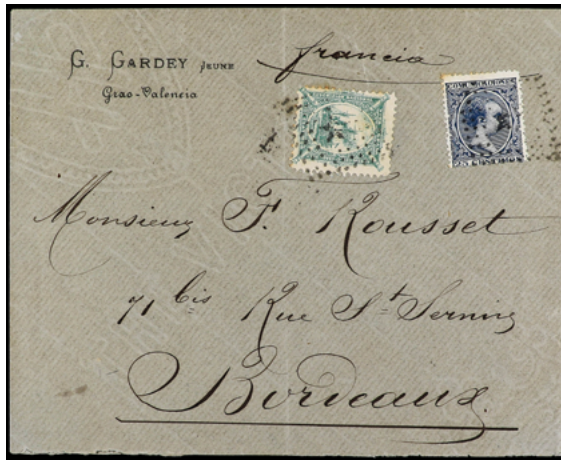 G. GARDEY JEUNE
Grao-Valencia
francia
Monsieur F. Rousset
71 bis Rue St Sernin
Bordeaux